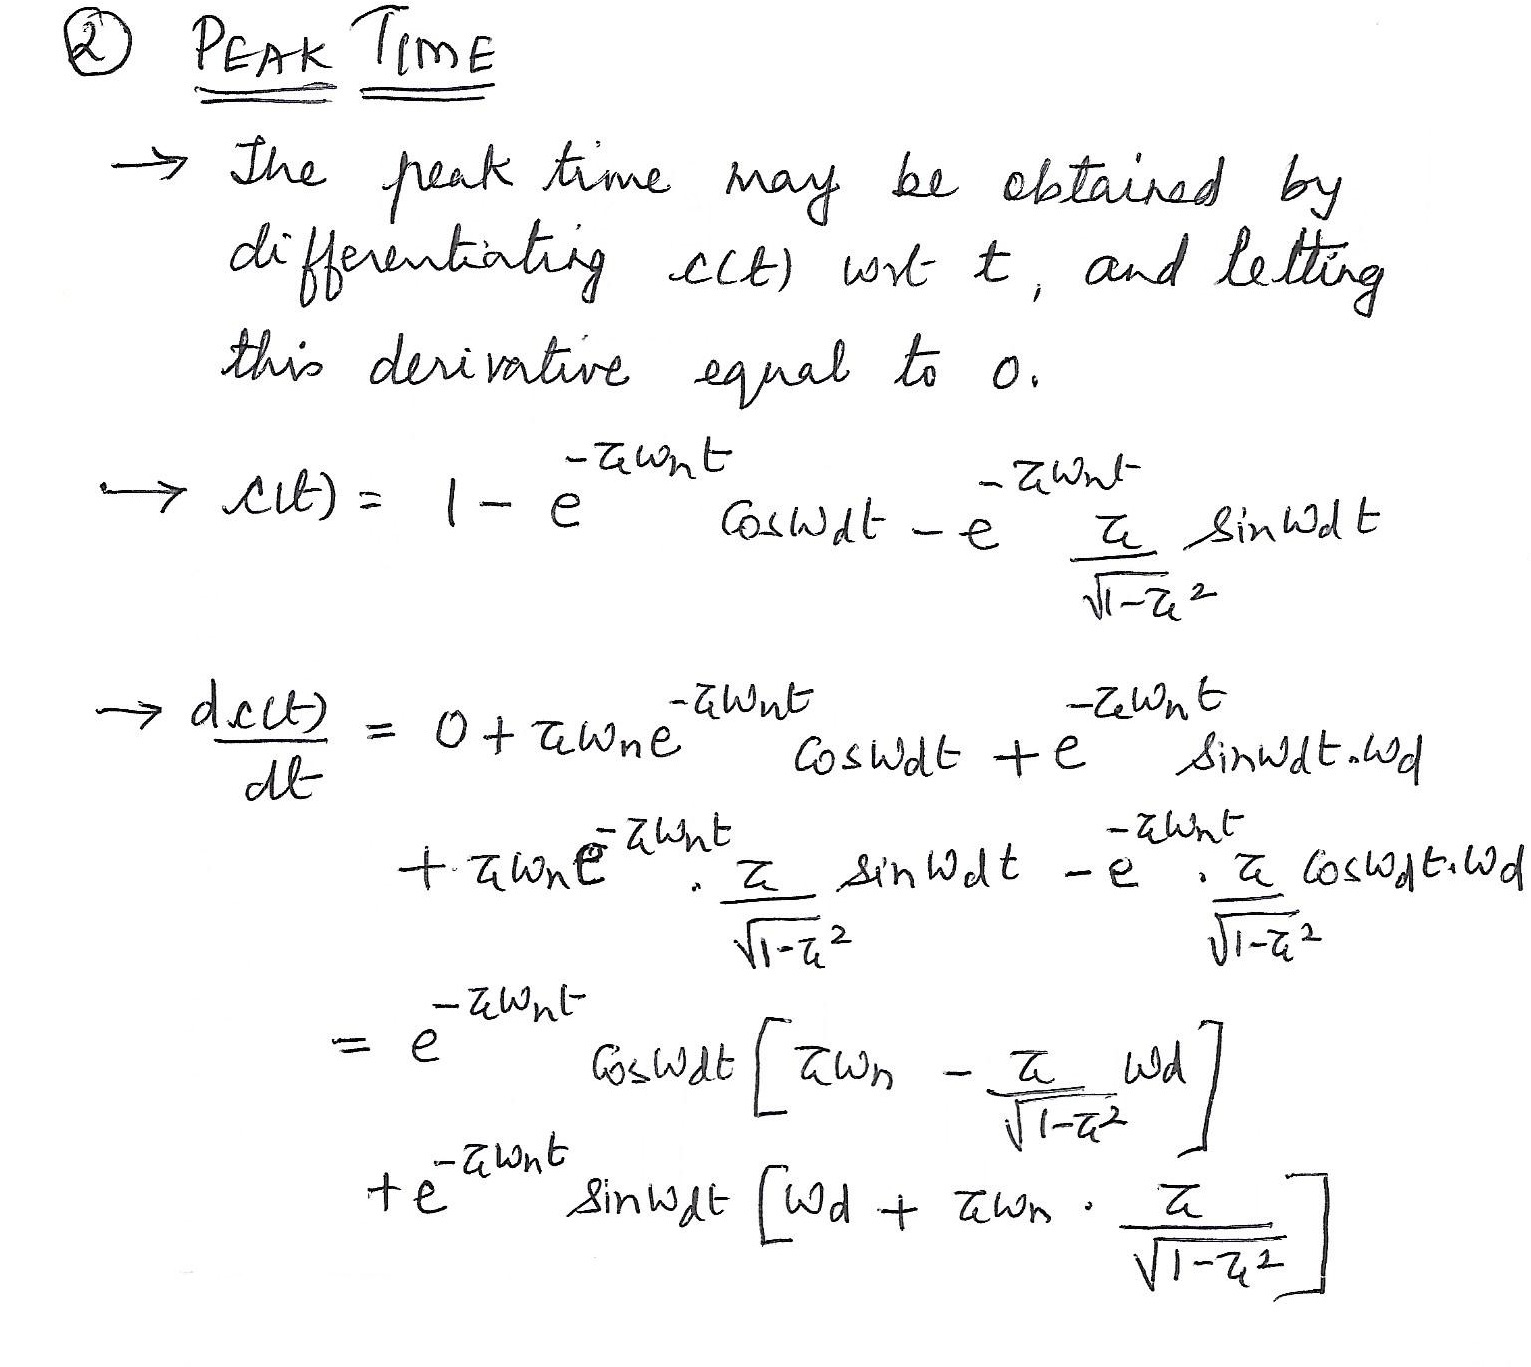 ② PEAK TIME
→ The peak time may be obtained by
differentiating c(t) wrt t, and letting
this derivative equal to 0.
→ c(t) = 1 - e^{-ζωnt} cosωdt - e^{-ζωnt} ζ/√(1-ζ²) sinωdt
→ dc(t)/dt = 0 + ζωne^{-ζωnt} cosωdt + e^{-ζωnt} sinωdt.ωd
+ ζωne^{-ζωnt} . ζ/√(1-ζ²) sinωdt - e^{-ζωnt} . ζ/√(1-ζ²) cosωdt.ωd
= e^{-ζωnt} cosωdt [ζωn - ζ/√(1-ζ²) ωd]
+ e^{-ζωnt} sinωdt [ωd + ζωn . ζ/√(1-ζ²)]